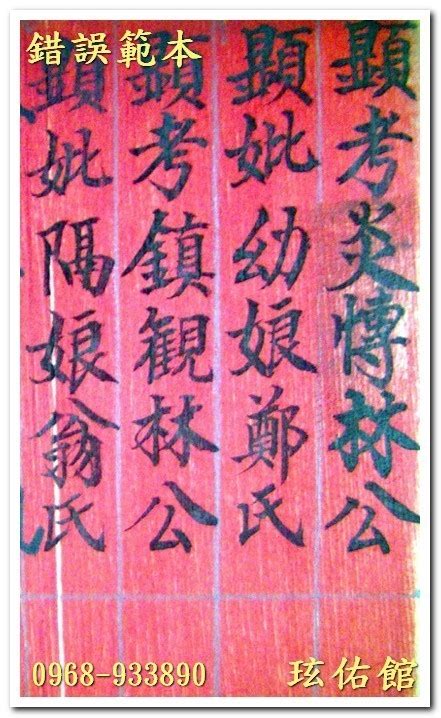 錯誤範本
顯考炎愽林公
顯妣幼娘鄭氏
顯考鎮觀林公
顯妣隔娘翁氏
0968-933890
玹佑館